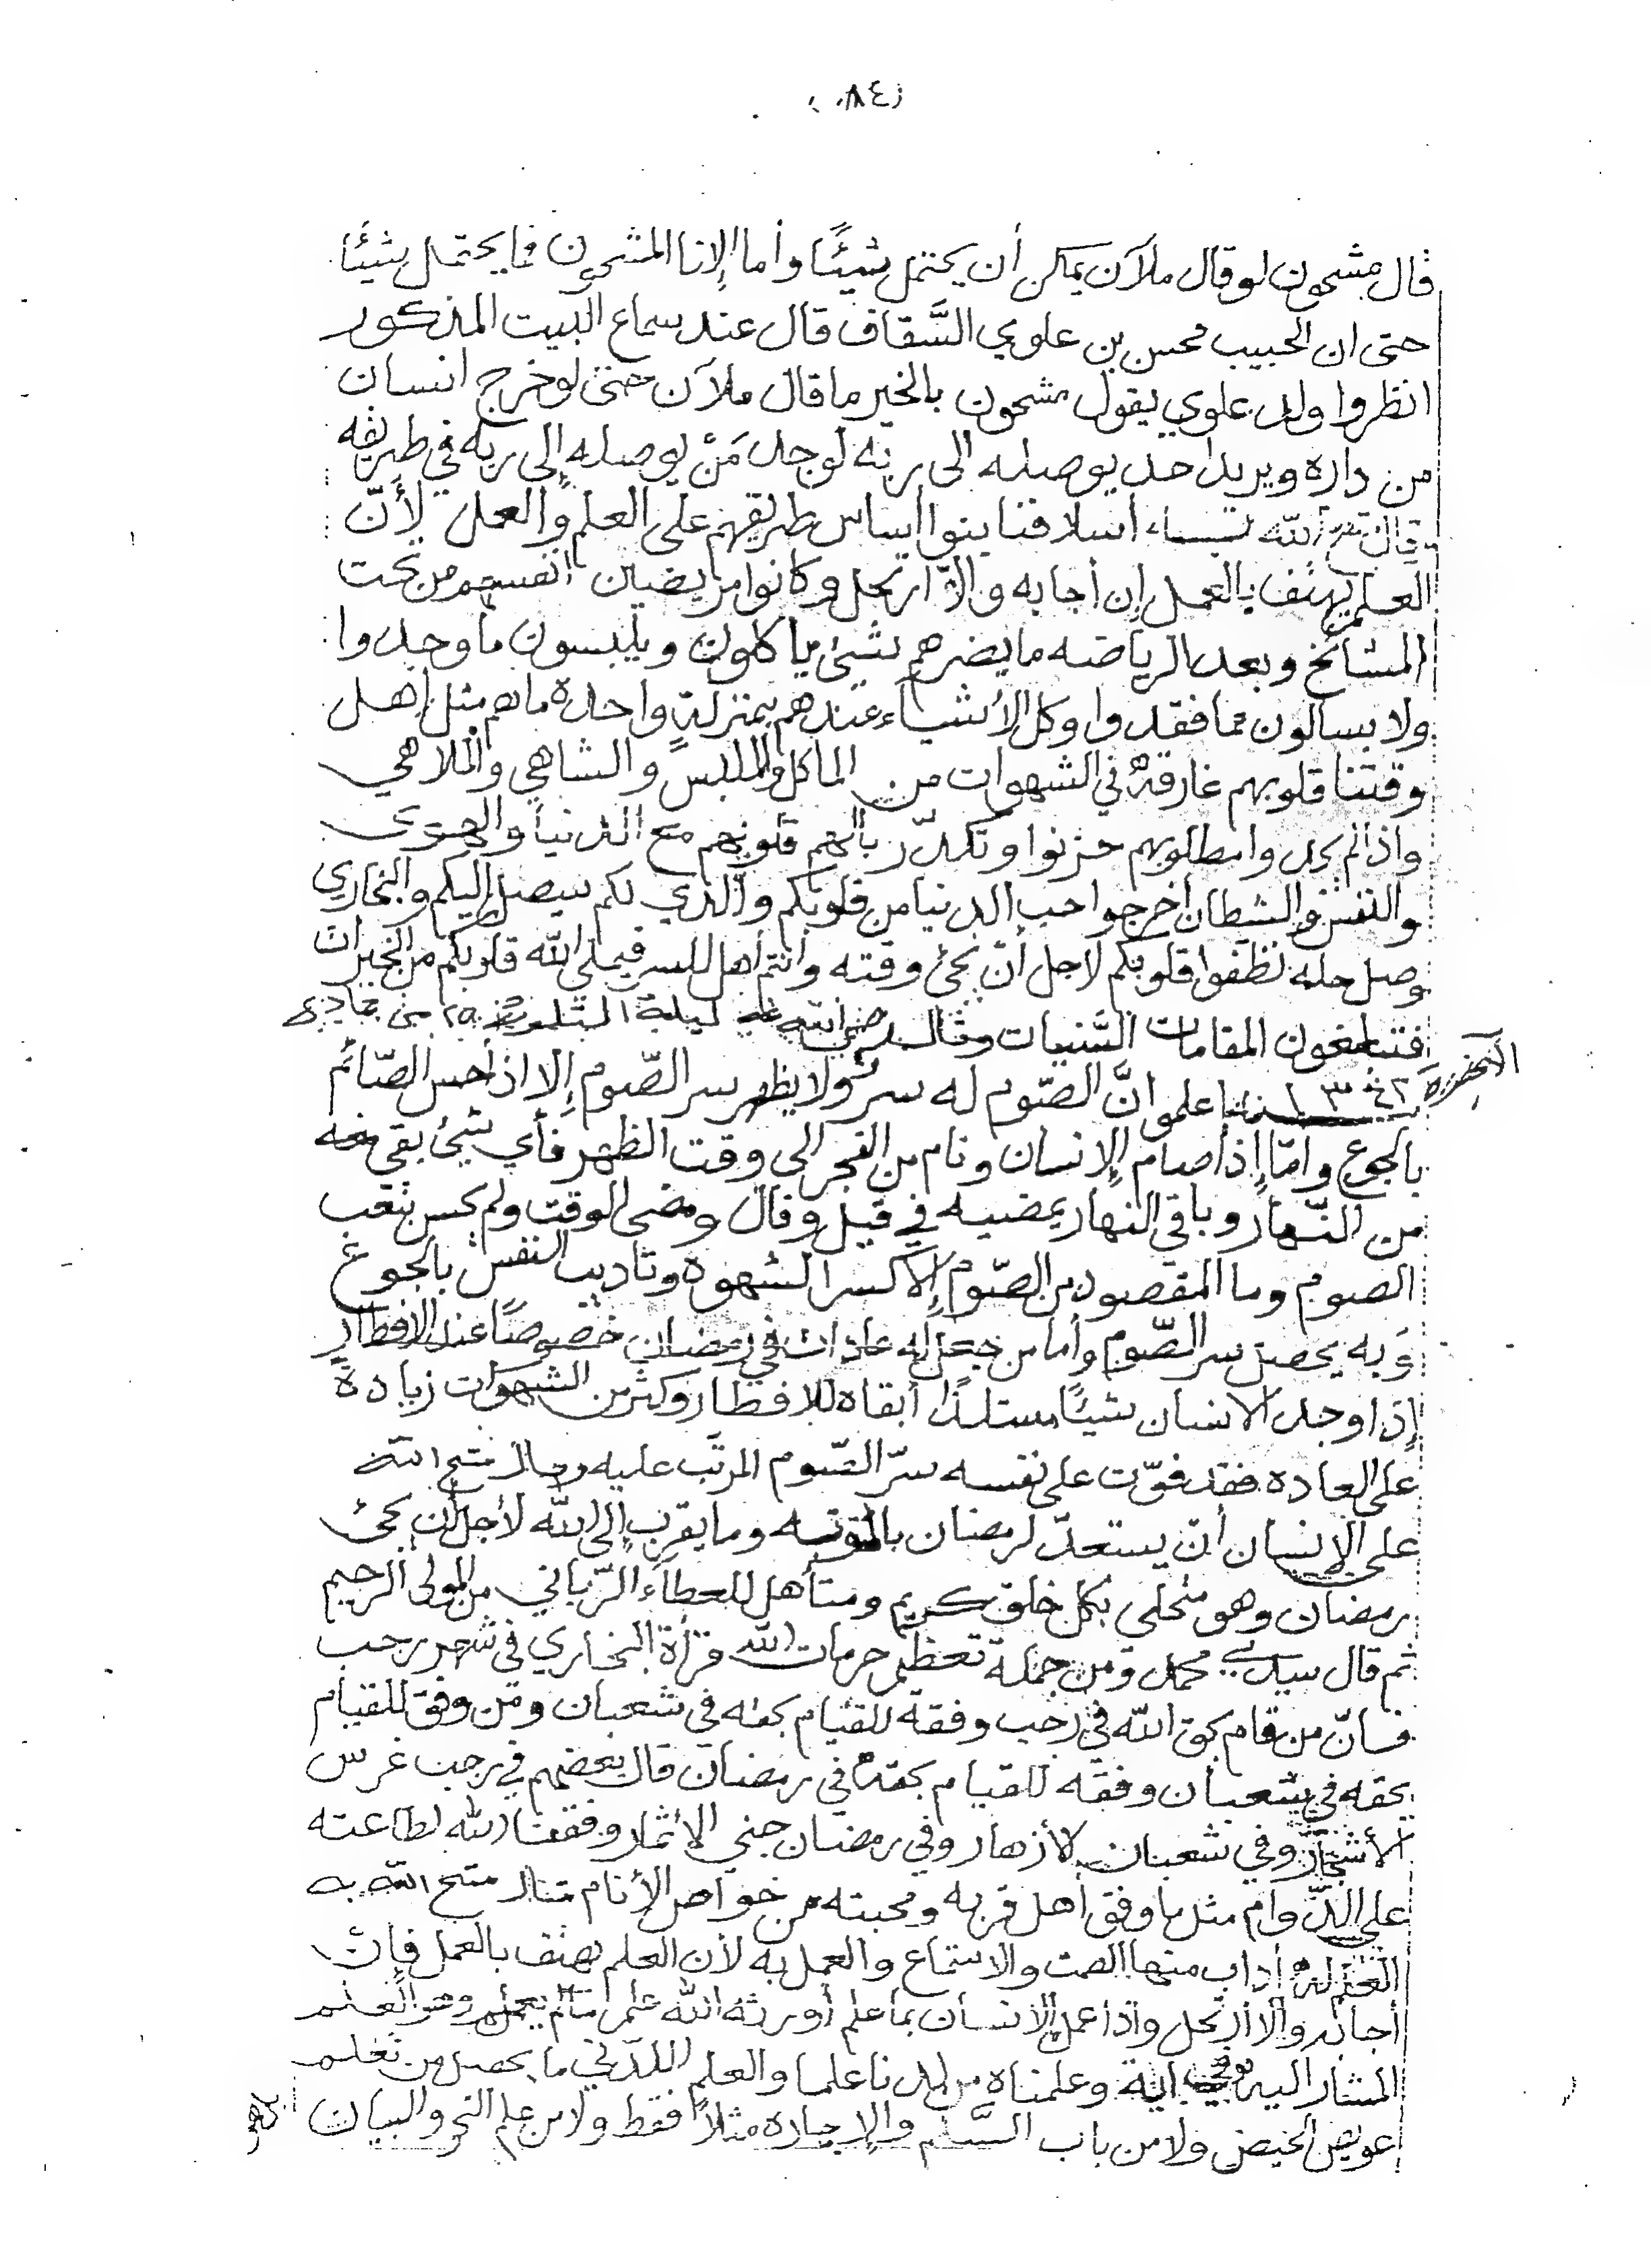 قال مشحون لو قال ملآن يمكن أن يحتمل شيئًا وأما الإنا المشحون فما يحتمل شيئًا
حتى ان الحبيب محسن بن علوي السَّقاف قال عند سماع البيت المذكور
انظروا ولد علوي يقول مشحون بالخير ما قال ملآن حتى لو خرج انسان
من داره ويريد احد يوصله الى ربه لوجد مَنْ يوصله إلى ربه في طريقه
أسلافنا بنوا أساس طريقهم على العلم والعمل لأنّ
العلم يهتف بالعمل إن أجابه وإلاّ ارتحل وكانوا يريضون أنفسهم من تحت
المشائخ وبعد الرياضه ما يضرهم شئ يأكلون ويلبسون ما وجدوا
ولا يسألون عما فقدوا وكل الأشياء عندهم بمنزلة واحدة ماهم مثل أهل
وقتنا قلوبهم غارقة في الشهوات من المأكل والملبس والشاهي والملاهي
واذا لم يجدوا مطلوبهم حزنوا وتكدّر بالهم قلوبهم مع الدنيا والهوى
والنفس والشطان أخرجوا حب الدنيا من قلوبكم والذي لكم سيصل إليكم والبخاري
وصل حله نظفوا قلوبكم لاجل أن يجئ وقته وانتم أهل للسر فيملي الله قلوبكم من الخيرات
فتبلغون المقامات السَّنيات وقال رضي الله عنه ليلة الثلوث ٢٥ من جمادى
الآخرة
اعلموا انَّ الصّوم له سرٌ ولا يظهر سر الصّوم إلا اذا أحس الصّائم
بالجوع وامّا إذا صام الإنسان ونام من الفجر الى وقت الظهر فأي شئ بقي معه
من النّهار وباقي النهار يمضيه في قيل وقال ومضى الوقت ولم يحس بتعب
الصوم وما المقصود من الصّوم إلا كسر الشهوة وتاديب النفس بالجوع
وَبه يحصل سر الصّوم وأما من جعل له عادات في رمضان خصوصًا عند الإفطار
إذا وجد الانسان شيئًا مستلذًا أبقاه للافطار وكثر من الشهوات زيادة
على العاده فقد فوّت على نفسه سرّ الصّوم المرتب عليه وقال متع الله به
على الإنسان أن يستعدّ لرمضان بالتوبه وما يقرب إلى الله لأجل أن يجئ
رمضان وهو متحلي بكل خلق كريم ومتأهل للعطاء الرّباني من المولى الرحيم
ثم قال سيدي محمد ومن جملة تعظيم حرمات الله قرأة البخاري في شهر رجب
فانّ من قام بحق الله في رجب وفقه للقيام بحقه في شعبان ومن وفق للقيام
بحقه في شعبان وفقه للقيام بحقه في رمضان قال بعضهم في رجب غرس
الأشجار وفي شعبان الأزهار وفي رمضان جني الأثمار وفقنا الله لطاعته
على الدّوام مثل ما وفق أهل قربه ومحبته من خواص الأنام وقال متع الله به
العلم له أداب منها الصمت والاستماع والعمل به لأن العلم يهتف بالعمل فإن
أجابه والا ارتحل واذا عمل الإنسان بما علم أورثه الله علم مالم يعلم وهو العلم
المشار اليه في آية وعلمناه من لدنا علما والعلم اللدّني ما يحصل من تعلم
عويص الحيض ولا من باب السَّلم والإجاره مثلاً فقط ولا من علم النحو والبيان